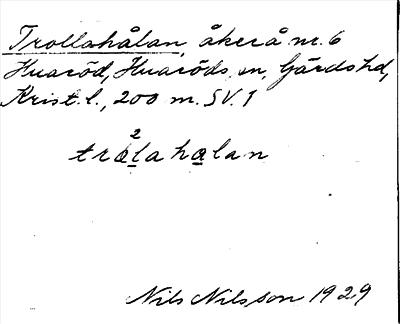 Trollahålan, åker å nr. 6
Huaröd, Huaröds sn, Gärds hd,
Krist. l., 200 m. SV. 1
2
tralahalan
Nils Nilsson 1929